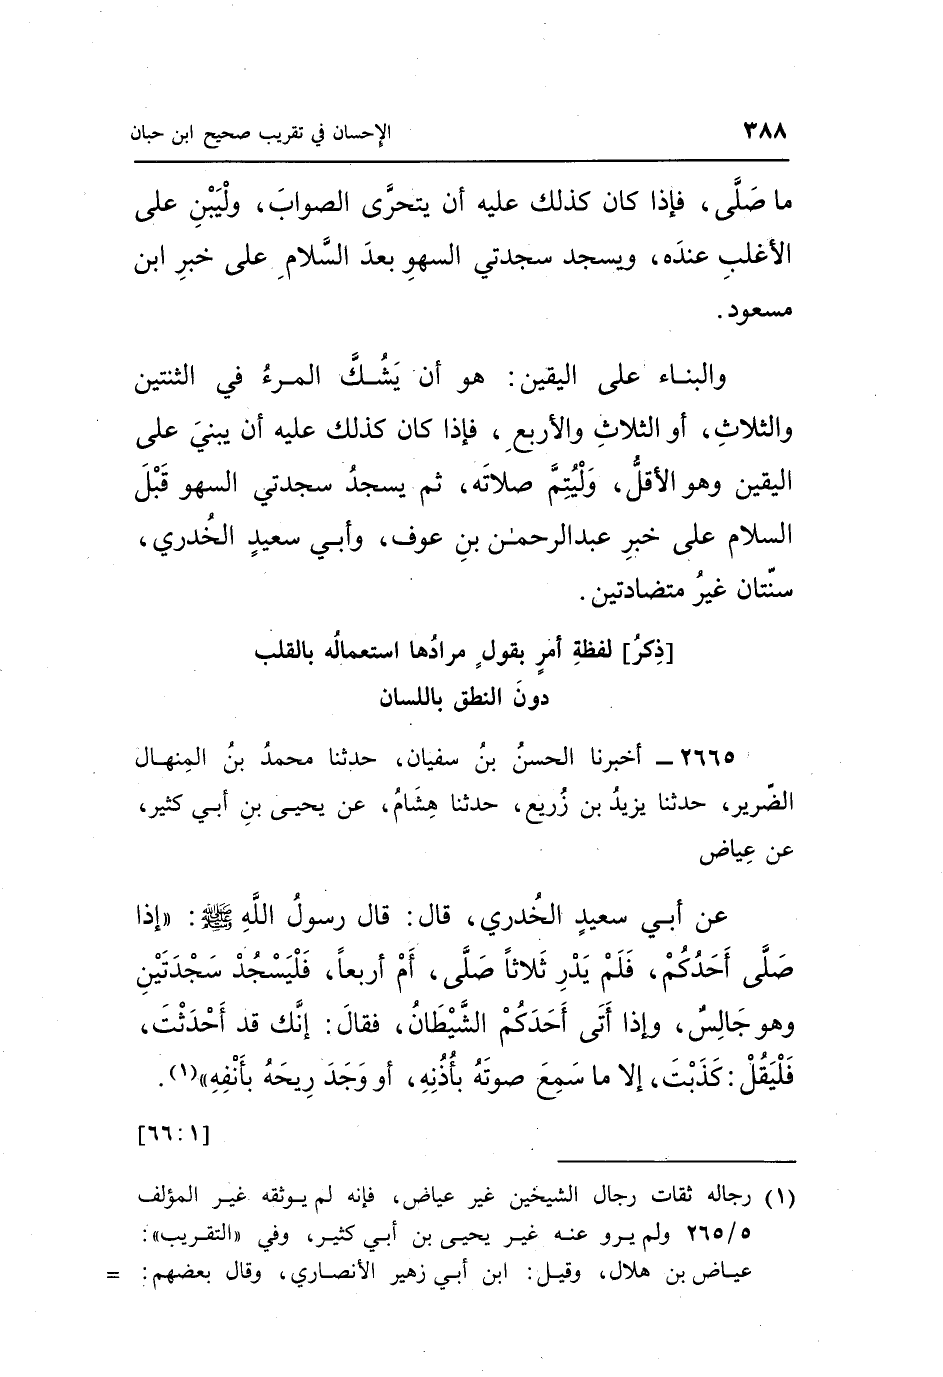 ٣٨٨ الإحسان في تقريب صحيح ابن حبان
ما صَلَّى، فإذا كان كذلك عليه أن يتحرَّى الصوابَ، ولْيَبْنِ على
الأغلبِ عندَه، ويسجد سجدتي السهوِ بعدَ السَّلامِ على خبرِ ابن
مسعود.
والبنـاء على اليقين: هو أن يَشُـكَّ المـرءُ في الثنتين
والثلاثِ، أو الثلاثِ والأربعِ، فإذا كان كذلك عليه أن يبنيَ على
اليقين وهو الأقلُّ، وَلْيُتِمَّ صلاتَه، ثم يسجدُ سجدتي السهو قَبْلَ
السلام على خبرِ عبدالرحمـٰن بنِ عوف، وأبـي سعيدٍ الخُدري،
سنّتان غيرُ متضادتين.
[ذِكرُ] لفظةِ أمرٍ بقولٍ مرادُها استعمالُه بالقلب
دونَ النطق باللسان
٢٦٦٥ ــ أخبرنا الحسنُ بنُ سفيان، حدثنا محمدُ بنُ المِنهـال
الضَّرير، حدثنا يزيدُ بن زُريع، حدثنا هِشَامُ، عن يحيـى بنِ أبـي كثير،
عن عِياض
عن أبـي سعيدٍ الخُدري، قال: قال رسولُ اللَّهِ ﷺ: «إذا
صَلَّى أَحَدُكُمْ، فَلَمْ يَدْرِ ثَلاثاً صَلَّى، أَمْ أربعاً، فَلْيَسْجُدْ سَجْدَتَيْنِ
وهو جَالِسٌ، وإذا أَتَى أَحَدَكُمْ الشَّيْطَانُ، فقالَ: إنَّك قد أَحْدَثْتَ،
فَلْيَقُلْ: كَذَبْتَ، إلا ما سَمِعَ صوتَهُ بأُذُنِهِ، أو وَجَدَ رِيحَهُ بأَنْفِهِ»(١).
[٦٦:١]
(١) رجاله ثقات رجال الشيخين غير عياض، فإنه لم يـوثقه غيـر المؤلف
٢٦٥/٥ ولم يـرو عنـه غيـر يحيـى بن أبـي كثيـر، وفي «التقـريب»:
عيـاض بن هلال، وقيـل: ابن أبـي زهير الأنصـاري، وقال بعضهم: =